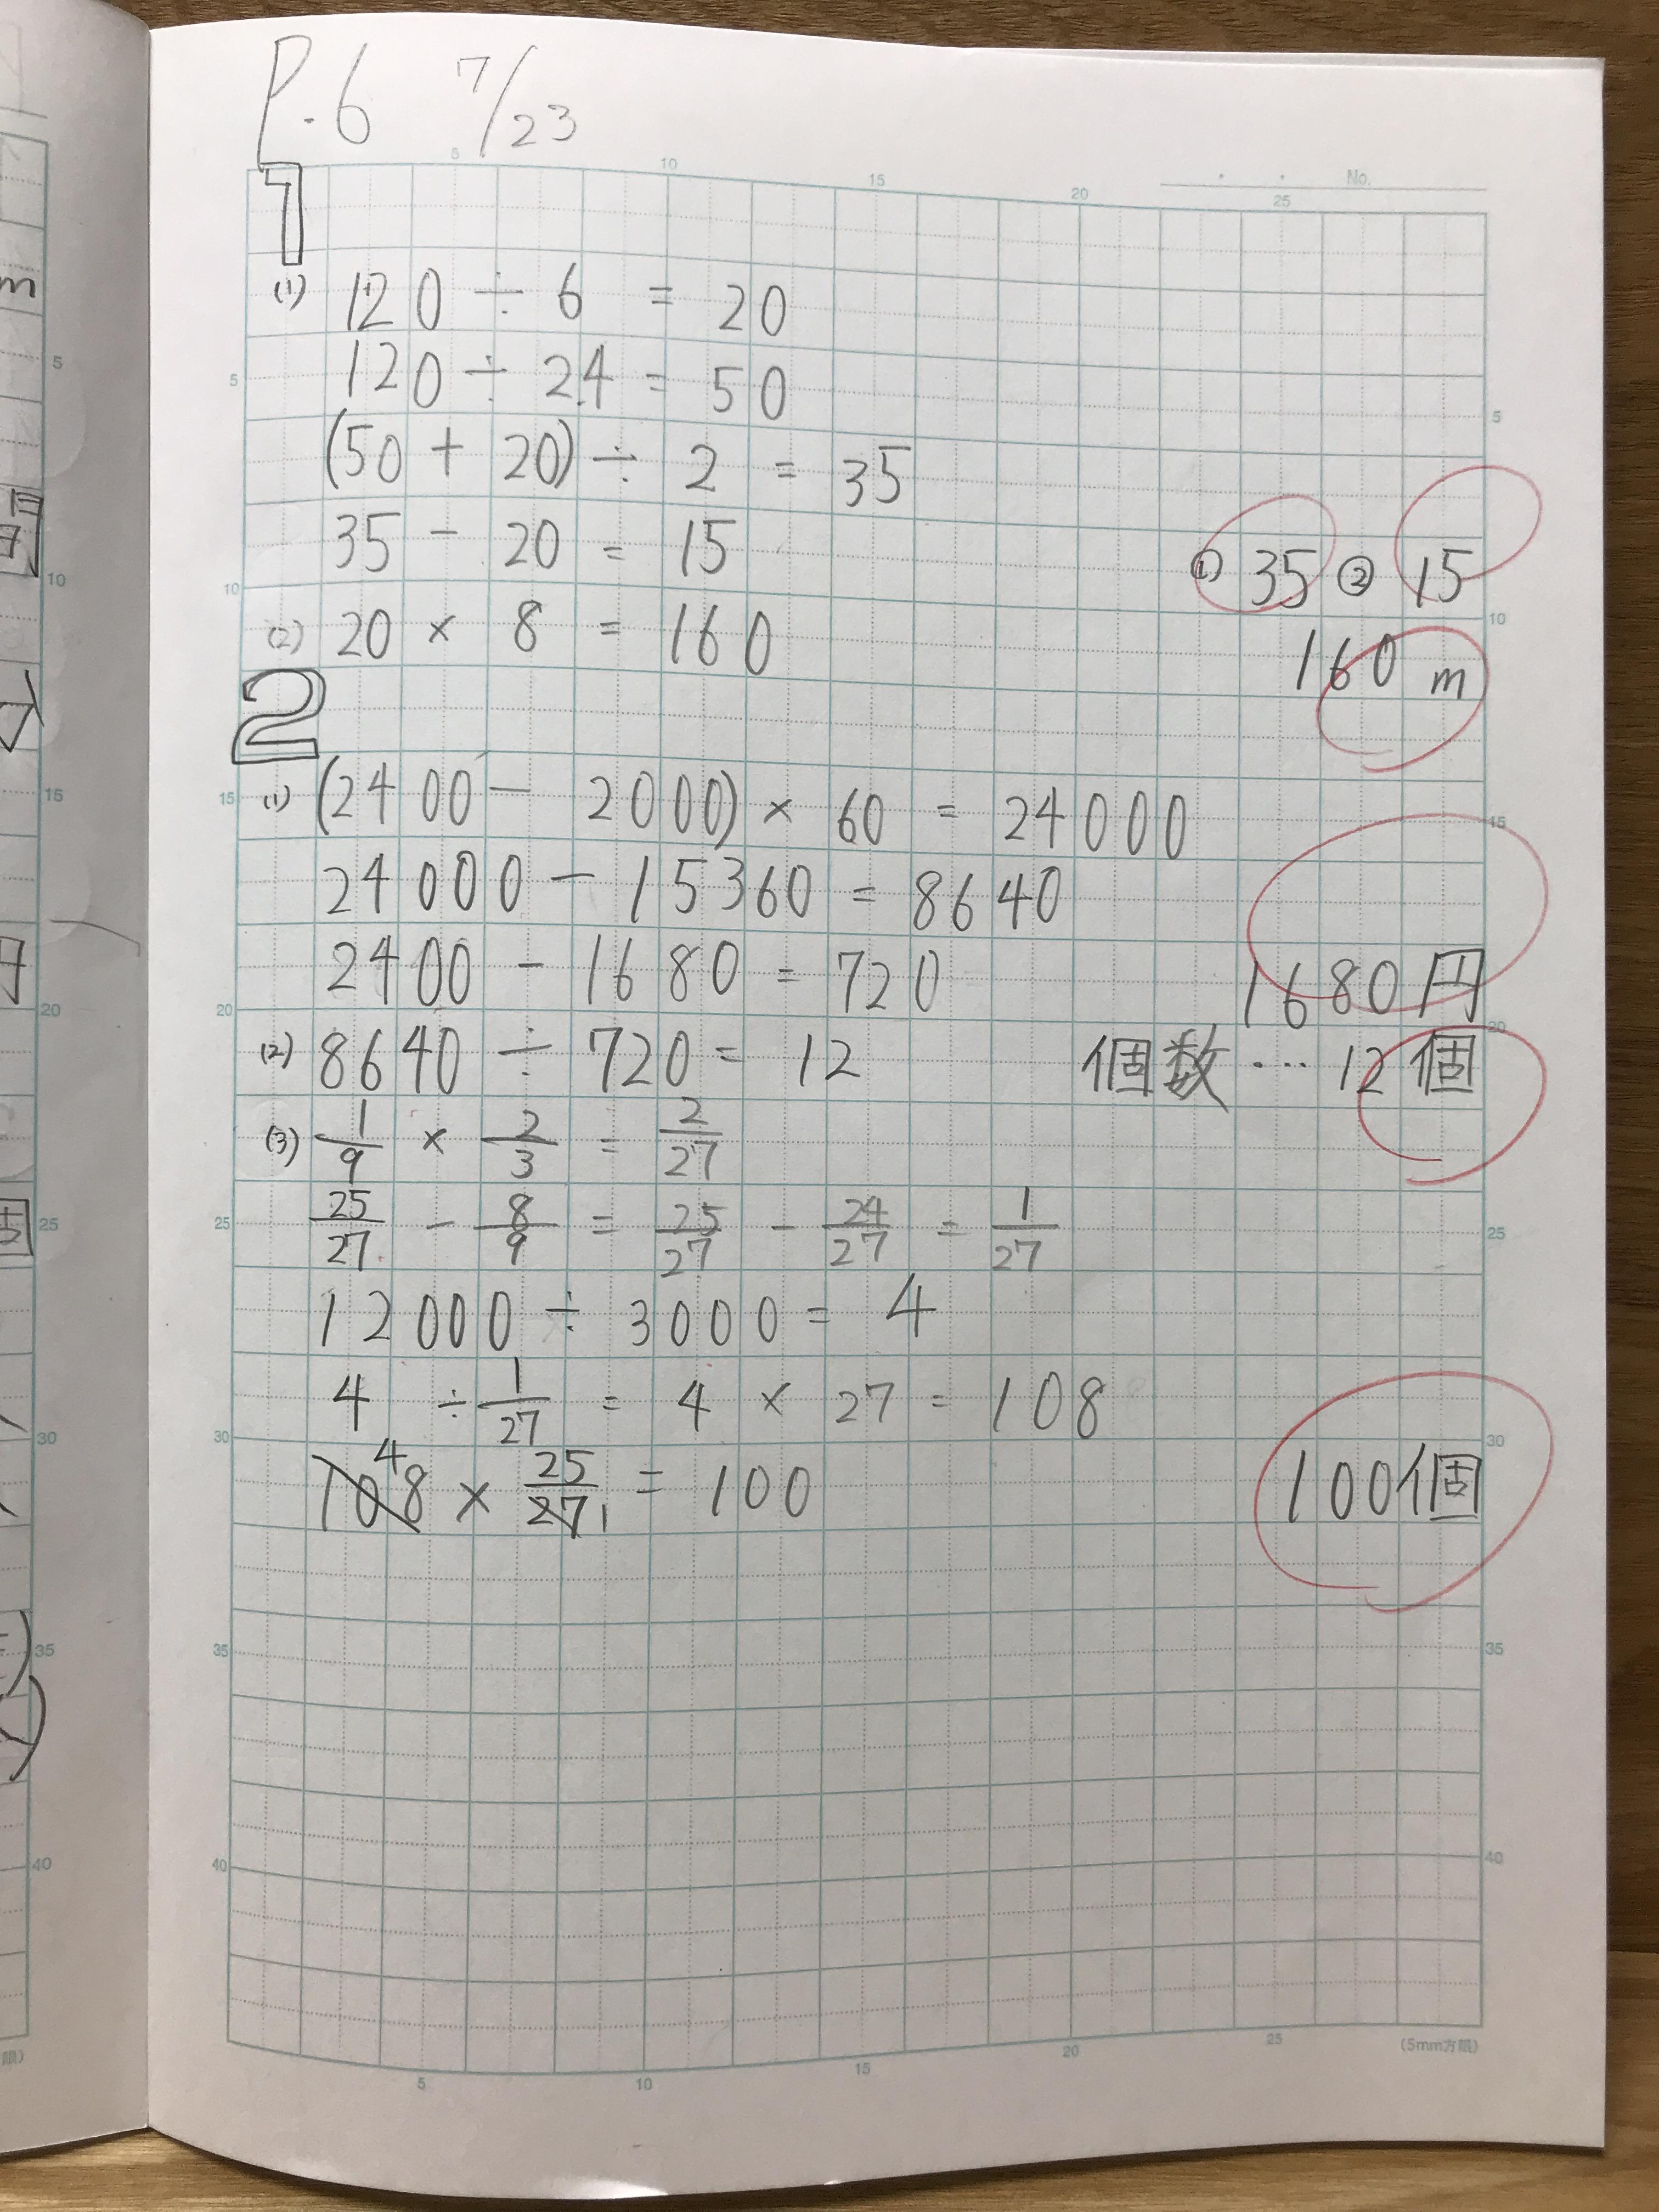 P.6 7/23
No.
1
(1) 120 ÷ 6 = 20
120 ÷ 2.4 = 50
(50 + 20) ÷ 2 = 35
35 - 20 = 15
① 35 ② 15
(2) 20 × 8 = 160
160 m
2
(1) (2400 - 2000) × 60 = 24000
24000 - 15360 = 8640
2400 - 1680 = 720
1680円
(2) 8640 ÷ 720 = 12
個数…12個
(3) 1/9 × 2/3 = 2/27
25/27 - 8/9 = 25/27 - 24/27 = 1/27
12000 ÷ 3000 = 4
4 ÷ 1/27 = 4 × 27 = 108
108 4 × 25/27 1 = 100
100個
(5mm方眼)